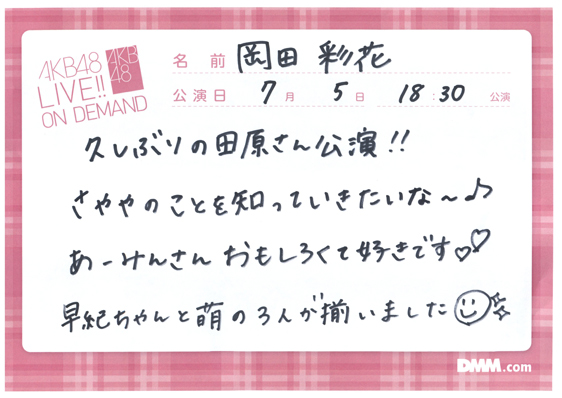 AKB48
LIVE!!
ON DEMAND
AKB
48
名前 岡田彩花
公演日 7月 5日 18:30 公演
久しぶりの田原さん公演!!
さややのことを知っていきたいな～♪
あーみんさんおもしろくて好きです♡♡
早紀ちゃんと萌の3人が揃いました
DMM.com